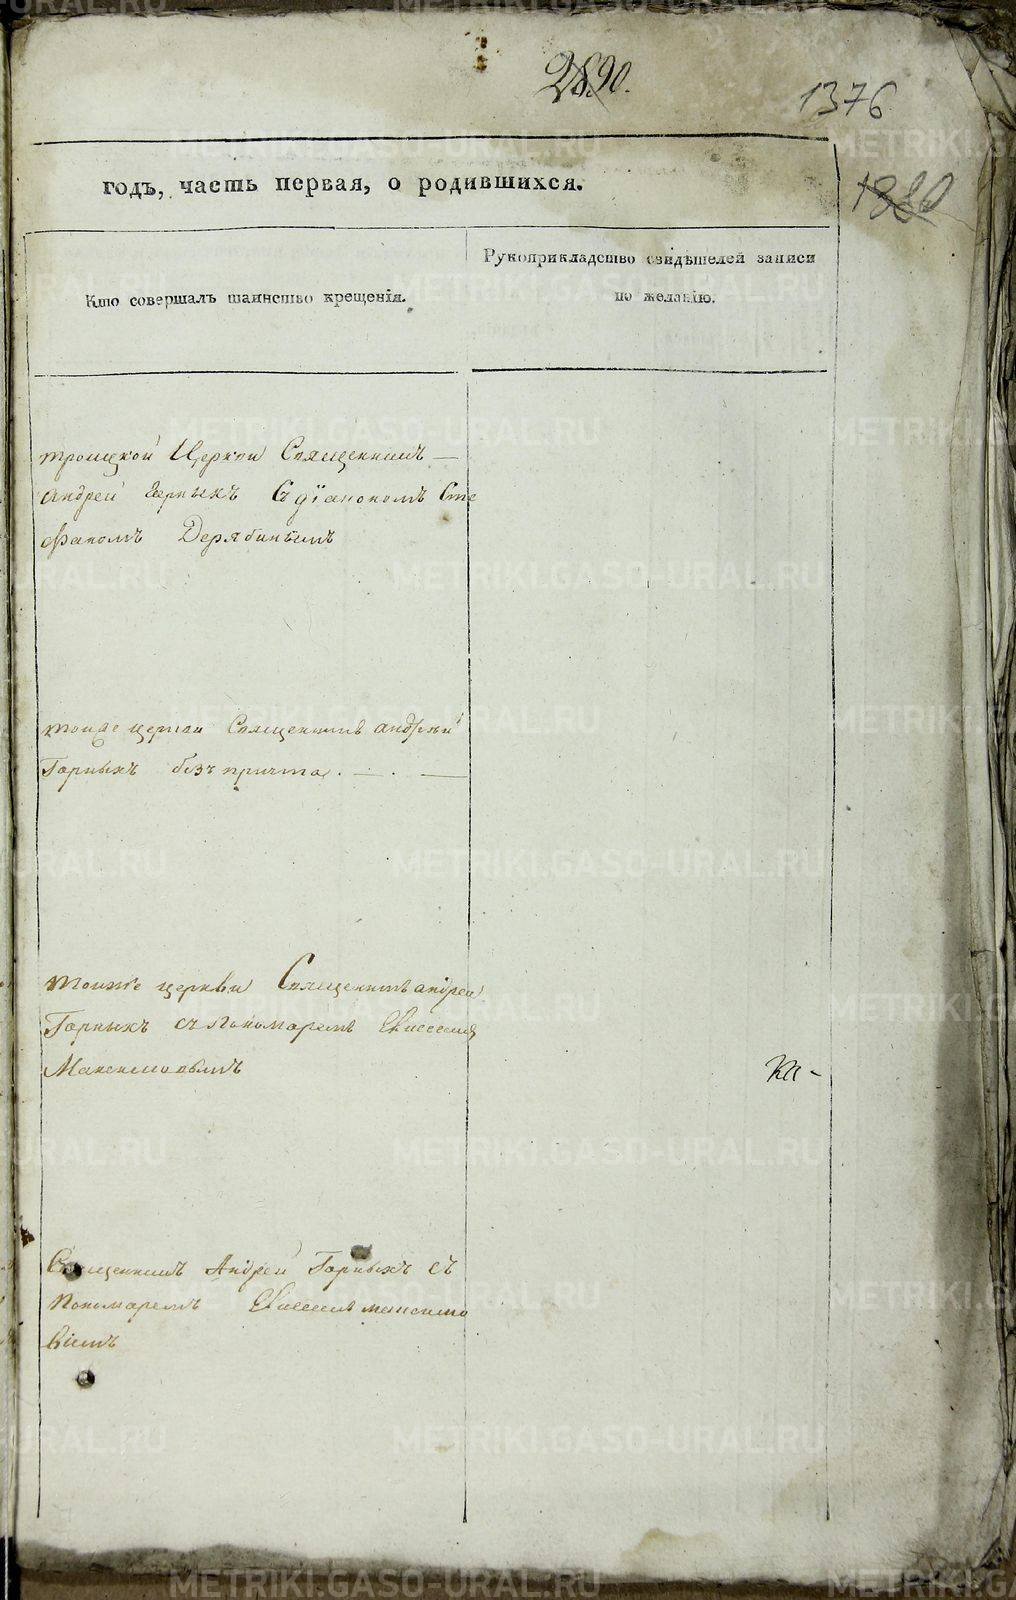 2890.
1376
1880
годъ, часть первая, о родившихся.
Кто совершалъ таинство крещенія.
Рукоприкладство свидѣтелей записи
по желанію.
троицкой Церкви Священникъ —
Андрей Горныхъ Съ діакономъ Сте
фаномъ Дерябинымъ
тоиже церкви Священникъ андрей
Горныхъ безъ причта. — . —
тоиже церкви Священникъ андрей
Горныхъ съ пономаремъ
Максимовымъ
Священникъ Андрей Горныхъ съ
пономаремъ максимо
вимъ
METRIKI.GASO-URAL.RU